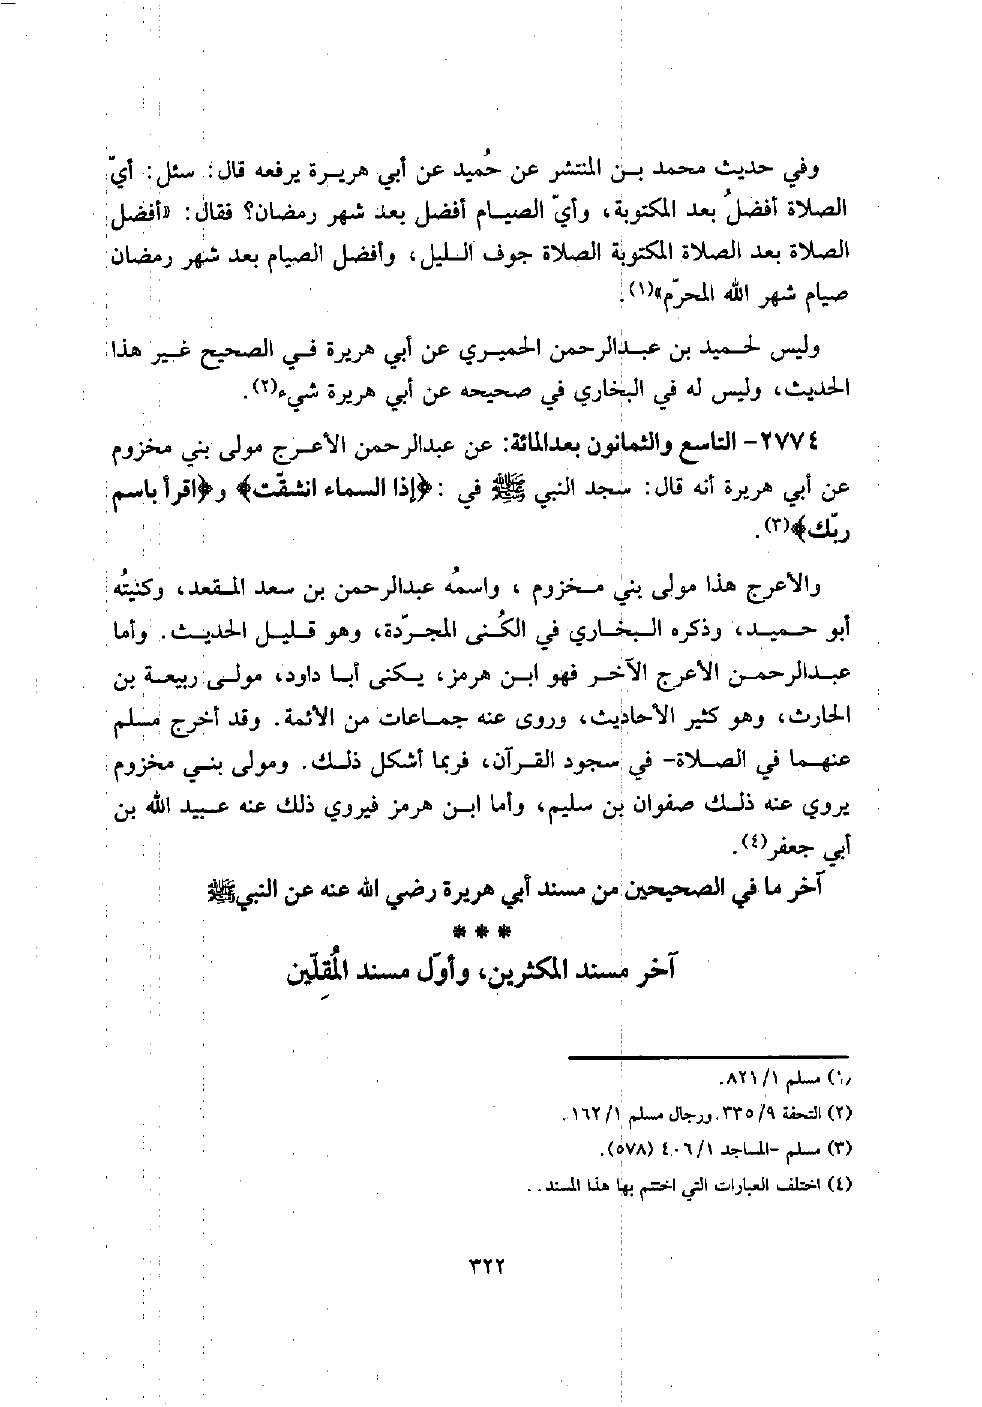 وفي حديث محمد بن المنتشر عن حُميد عن أبي هريرة يرفعه قال: سئل: أيّ
الصلاة أفضلُ بعد المكتوبة، وأيّ الصيام أفضل بعد شهر رمضان؟ فقال: «أفضل
الصلاة بعد الصلاة المكتوبة الصلاة جوف الليل، وأفضل الصيام بعد شهر رمضان
صيام شهر الله المحرّم»(١).
وليس لحميد بن عبدالرحمن الحميري عن أبي هريرة في الصحيح غير هذا
الحديث، وليس له في البخاري في صحيحه عن أبي هريرة شيء(٢).
٢٧٧٤- التاسع والثمانون بعدالمائة: عن عبدالرحمن الأعرج مولى بني مخزوم
عن أبي هريرة أنه قال: سجد النبي ﷺ في : ﴿إذا السماء انشقّت﴾ و﴿اقرأ باسم
ربّك﴾(٣).
والأعرج هذا مولى بني مخزوم ، واسمُه عبدالرحمن بن سعد المقعد، وكنيتُه
أبو حميد، وذكره البخاري في الكُنى المجرّدة، وهو قليل الحديث. وأما
عبدالرحمن الأعرج الآخر فهو ابن هرمز، يكنى أبا داود، مولى ربيعة بن
الحارث، وهو كثير الأحاديث، وروى عنه جماعات من الأئمة. وقد أخرج مسلم
عنهما في الصلاة- في سجود القرآن، فربما أشكل ذلك. ومولى بني مخزوم
يروي عنه ذلك صفوان بن سليم، وأما ابن هرمز فيروي ذلك عنه عبيد الله بن
أبي جعفر(٤).
آخر ما في الصحيحين من مسند أبي هريرة رضي الله عنه عن النبيﷺ
* * *
آخر مسند المكثرين، وأوّل مسند المُقِلّين
(١) مسلم ١/ ٨٢١.
(٢) التحفة ٩/ ٣٣٥. ورجال مسلم ١/ ١٦٢.
(٣) مسلم -المساجد ١/ ٤٠٦ (٥٧٨).
(٤) اختلف العبارات التي اختتم بها هذا المسند..
٣٢٢